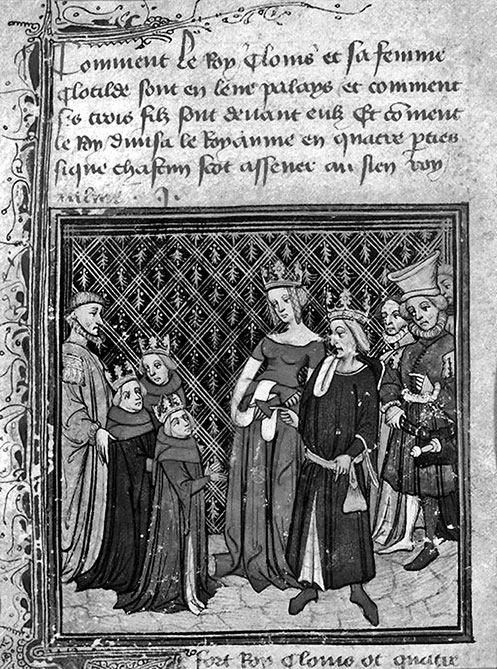 Comment Le Roy Clouis et sa femme
Clotilde sont en leur palays et comment
ses trois filz sont deuant eulz Et coment
le Roy diuisa le Royaume en quatre pties
sique chascun scot assener au sien roy
aulme . j .
fort Roy Clouis ot quatre